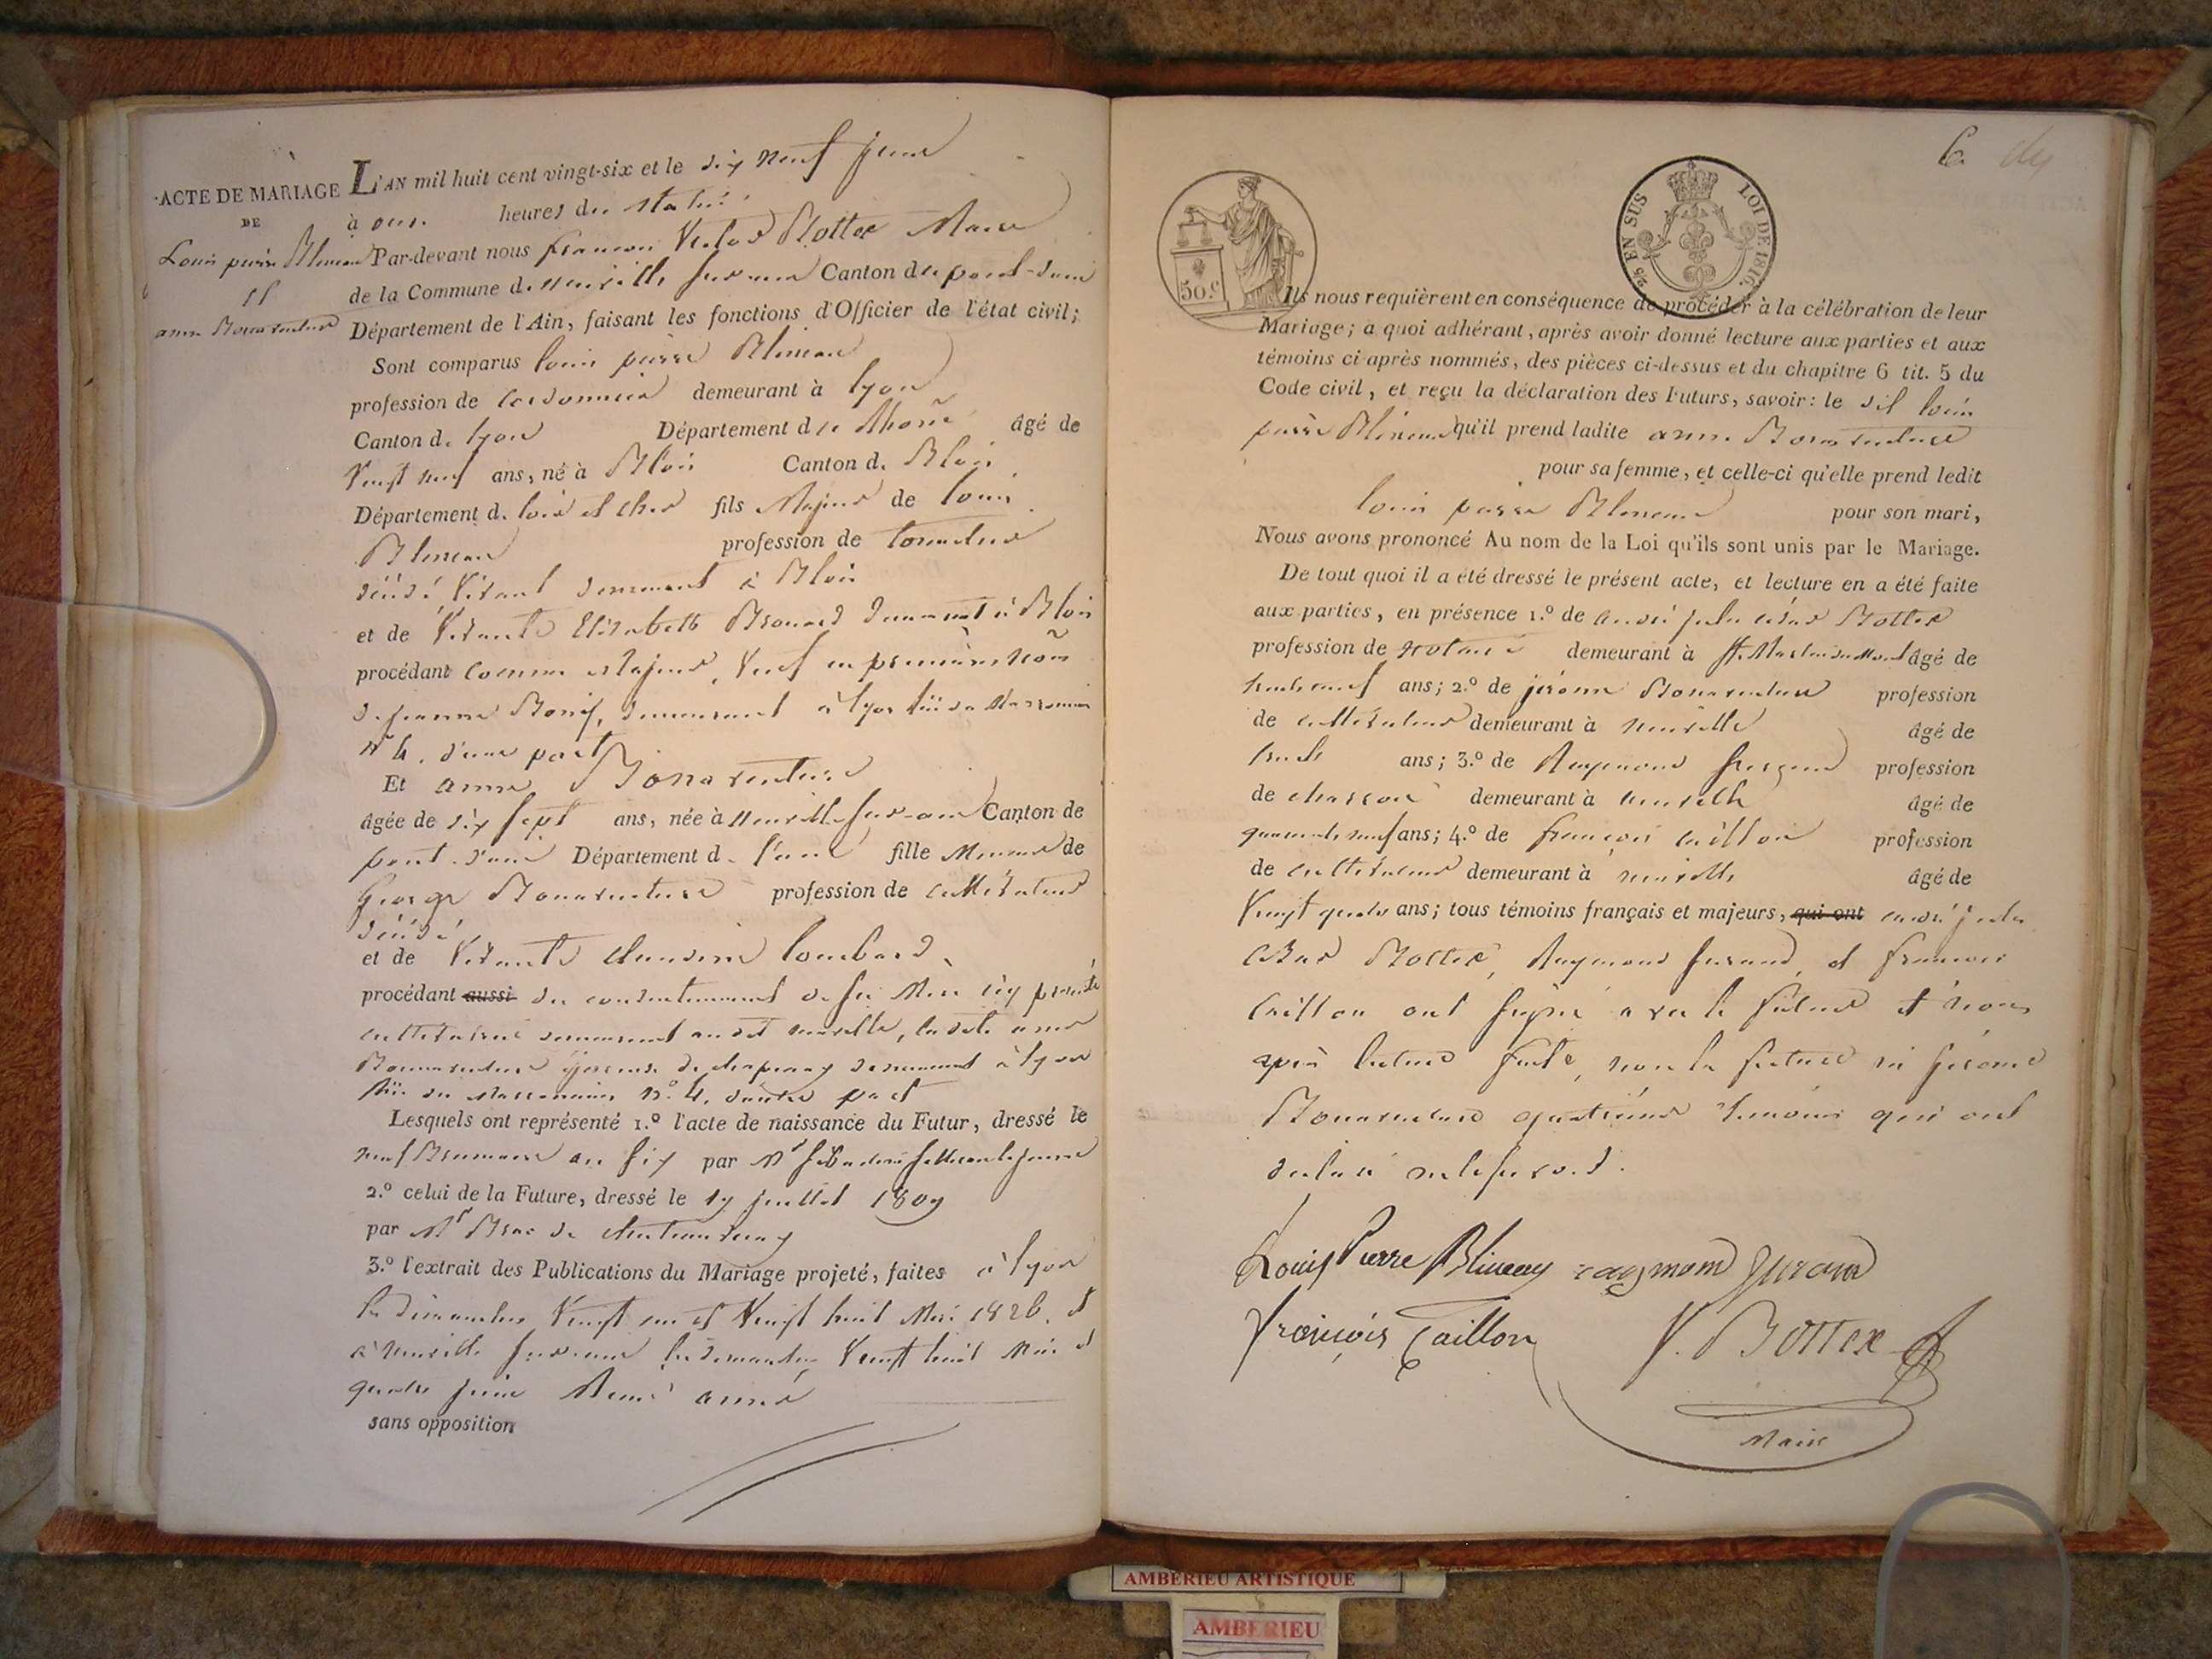 ACTE DE MARIAGE
DE
Louis pierre Blineau
et
anne Bonaventure
L'AN mil huit cent vingt-six et le dix neuf juin
à onze heures du matin
Par-devant nous françois Victor Bottex Maire
de la Commune de neuville sur ain Canton de pont-dain
Département de l'Ain, faisant les fonctions d'Officier de l'état civil;
Sont comparus louis pierre Blineau
profession de cordonnier demeurant à lyon
Canton de lyon Département du Rhône âgé de
Vingt neuf ans, né à Blois Canton de Blois
Département de loir et cher fils Majeur de louis
Blineau profession de tonnelier
décédé Vivant demeurant à Blois
et de Vivante Elizabeth demeurant à Blois
procédant comme Majeur, Veuf en premières
de jeanne demeurant à lyon
n° 4, d'une part
Et anne Bonaventure
âgée de dix sept ans, née à neuville sur-ain Canton de
pont-d'ain Département de l'ain fille Mineure de
George Bonaventure profession de cultivateur
décédé
et de Vivante Claudine lombard
procédant aussi du consentement de sa Mere icy présente
cultivatrice demeurant audit neuville, ladite anne
Bonaventure demeurant à lyon
n° 4, d'autre part
Lesquels ont représenté 1.° l'acte de naissance du Futur, dressé le
neuf Brumaire an six par Mr
2.° celui de la Future, dressé le 17 juillet 1809
par Mr Brac de
3.° l'extrait des Publications du Mariage projeté, faites à lyon
les dimanches Vingt un et Vingt huit Mai 1826. et
à neuville sur ain les dimanches Vingt huit Mai et
quatre juin Même année
sans opposition
6.
50.c
2/5 EN SUS LOI DE 1816.
Ils nous requièrent en conséquence de procéder à la célébration de leur
Mariage; a quoi adhérant, après avoir donné lecture aux parties et aux
témoins ci après nommés, des pièces ci-dessus et du chapitre 6 tit. 5 du
Code civil, et reçu la déclaration des Futurs, savoir: le dit louis
pierre Blineau qu'il prend ladite anne Bonaventure
pour sa femme, et celle-ci qu'elle prend ledit
louis pierre Blineau pour son mari,
Nous avons prononcé Au nom de la Loi qu'ils sont unis par le Mariage.
De tout quoi il a été dressé le présent acte, et lecture en a été faite
aux parties, en présence 1.° de andré jules césar Bottex
profession de notaire demeurant à St. Martin du Mont âgé de
trente neuf ans; 2.° de jérome Bonaventure profession
de cultivateur demeurant à neuville âgé de
trente ans; 3.° de Raymond profession
de demeurant à neuville âgé de
quarante neuf ans; 4.° de françois caillon profession
de cultivateur demeurant à neuville âgé de
Vingt quatre ans; tous témoins français et majeurs, qui ont andré jules
césar Bottex, Raymond et françois
Caillon ont signé avec le futur et nous
après lecture faite, non la future ni jérome
Bonaventure quatrième témoin qui ont
déclaré ne le savoir.
Louis Pierre Blineau raymond
françois Caillon V. Bottex
Maire
AMBERIEU ARTISTIQUE
AMBERIEU